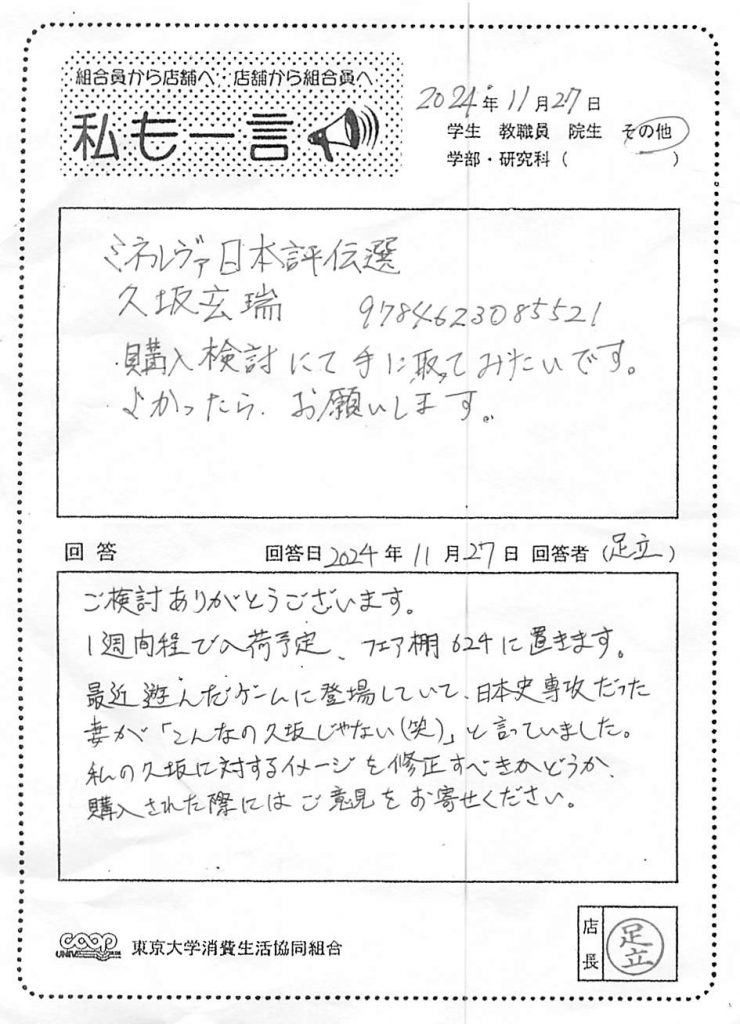 組合員から店舗へ 店舗から組合員へ
私も一言
2024年11月27日
学生 教職員 院生 その他
学部・研究科( )
ミネルヴァ日本評伝選
久坂玄瑞 9784623085521
購入検討にて手に取ってみたいです。
よかったら、お願いします。
回答 回答日2024年11月27日 回答者(足立)
ご検討ありがとうございます。
1週間程で入荷予定、フェア棚624に置きます。
最近遊んだゲームに登場していて、日本史専攻だった
妻が「こんなの久坂じゃない(笑)」と言っていました。
私の久坂に対するイメージを修正すべきかどうか、
購入された際にはご意見をお寄せください。
coop
UNIV
東京大学消費生活協同組合
店長
足立